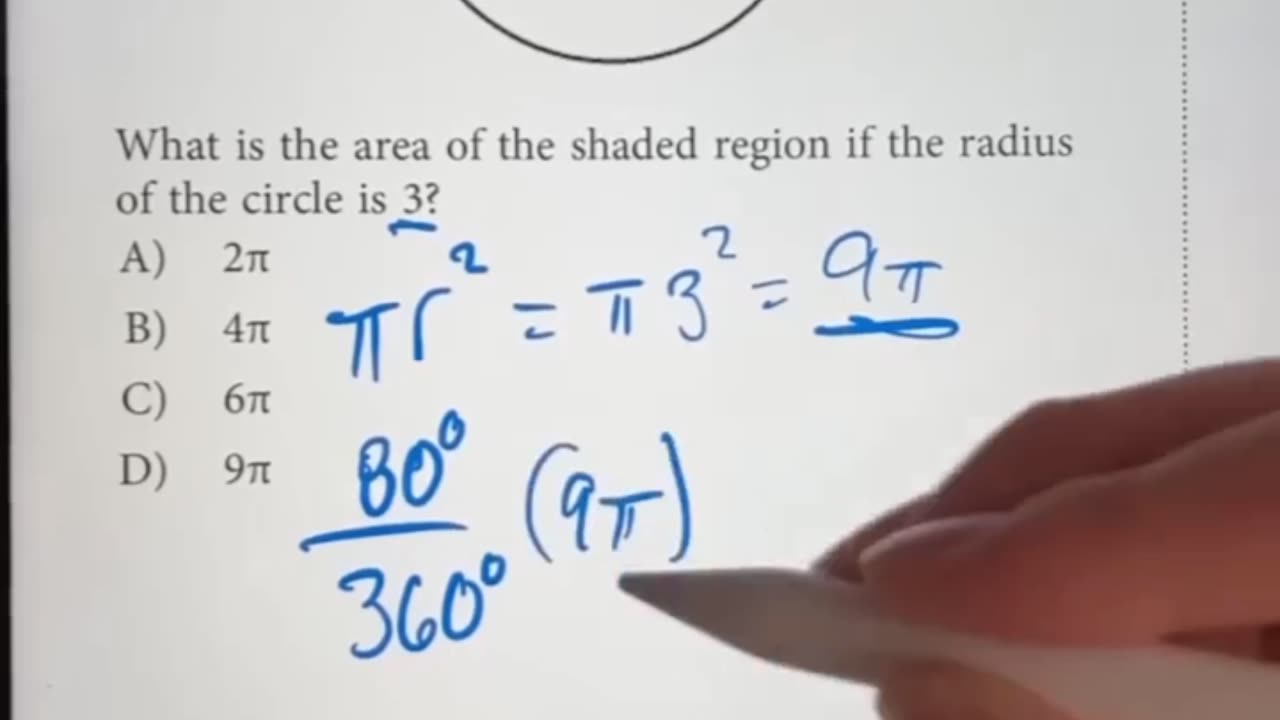 What is the area of the shaded region if the radius
of the circle is 3?
A) 2π
B) 4π
C) 6π
D) 9π
πr² = π3² = 9π
80°/360° (9π)